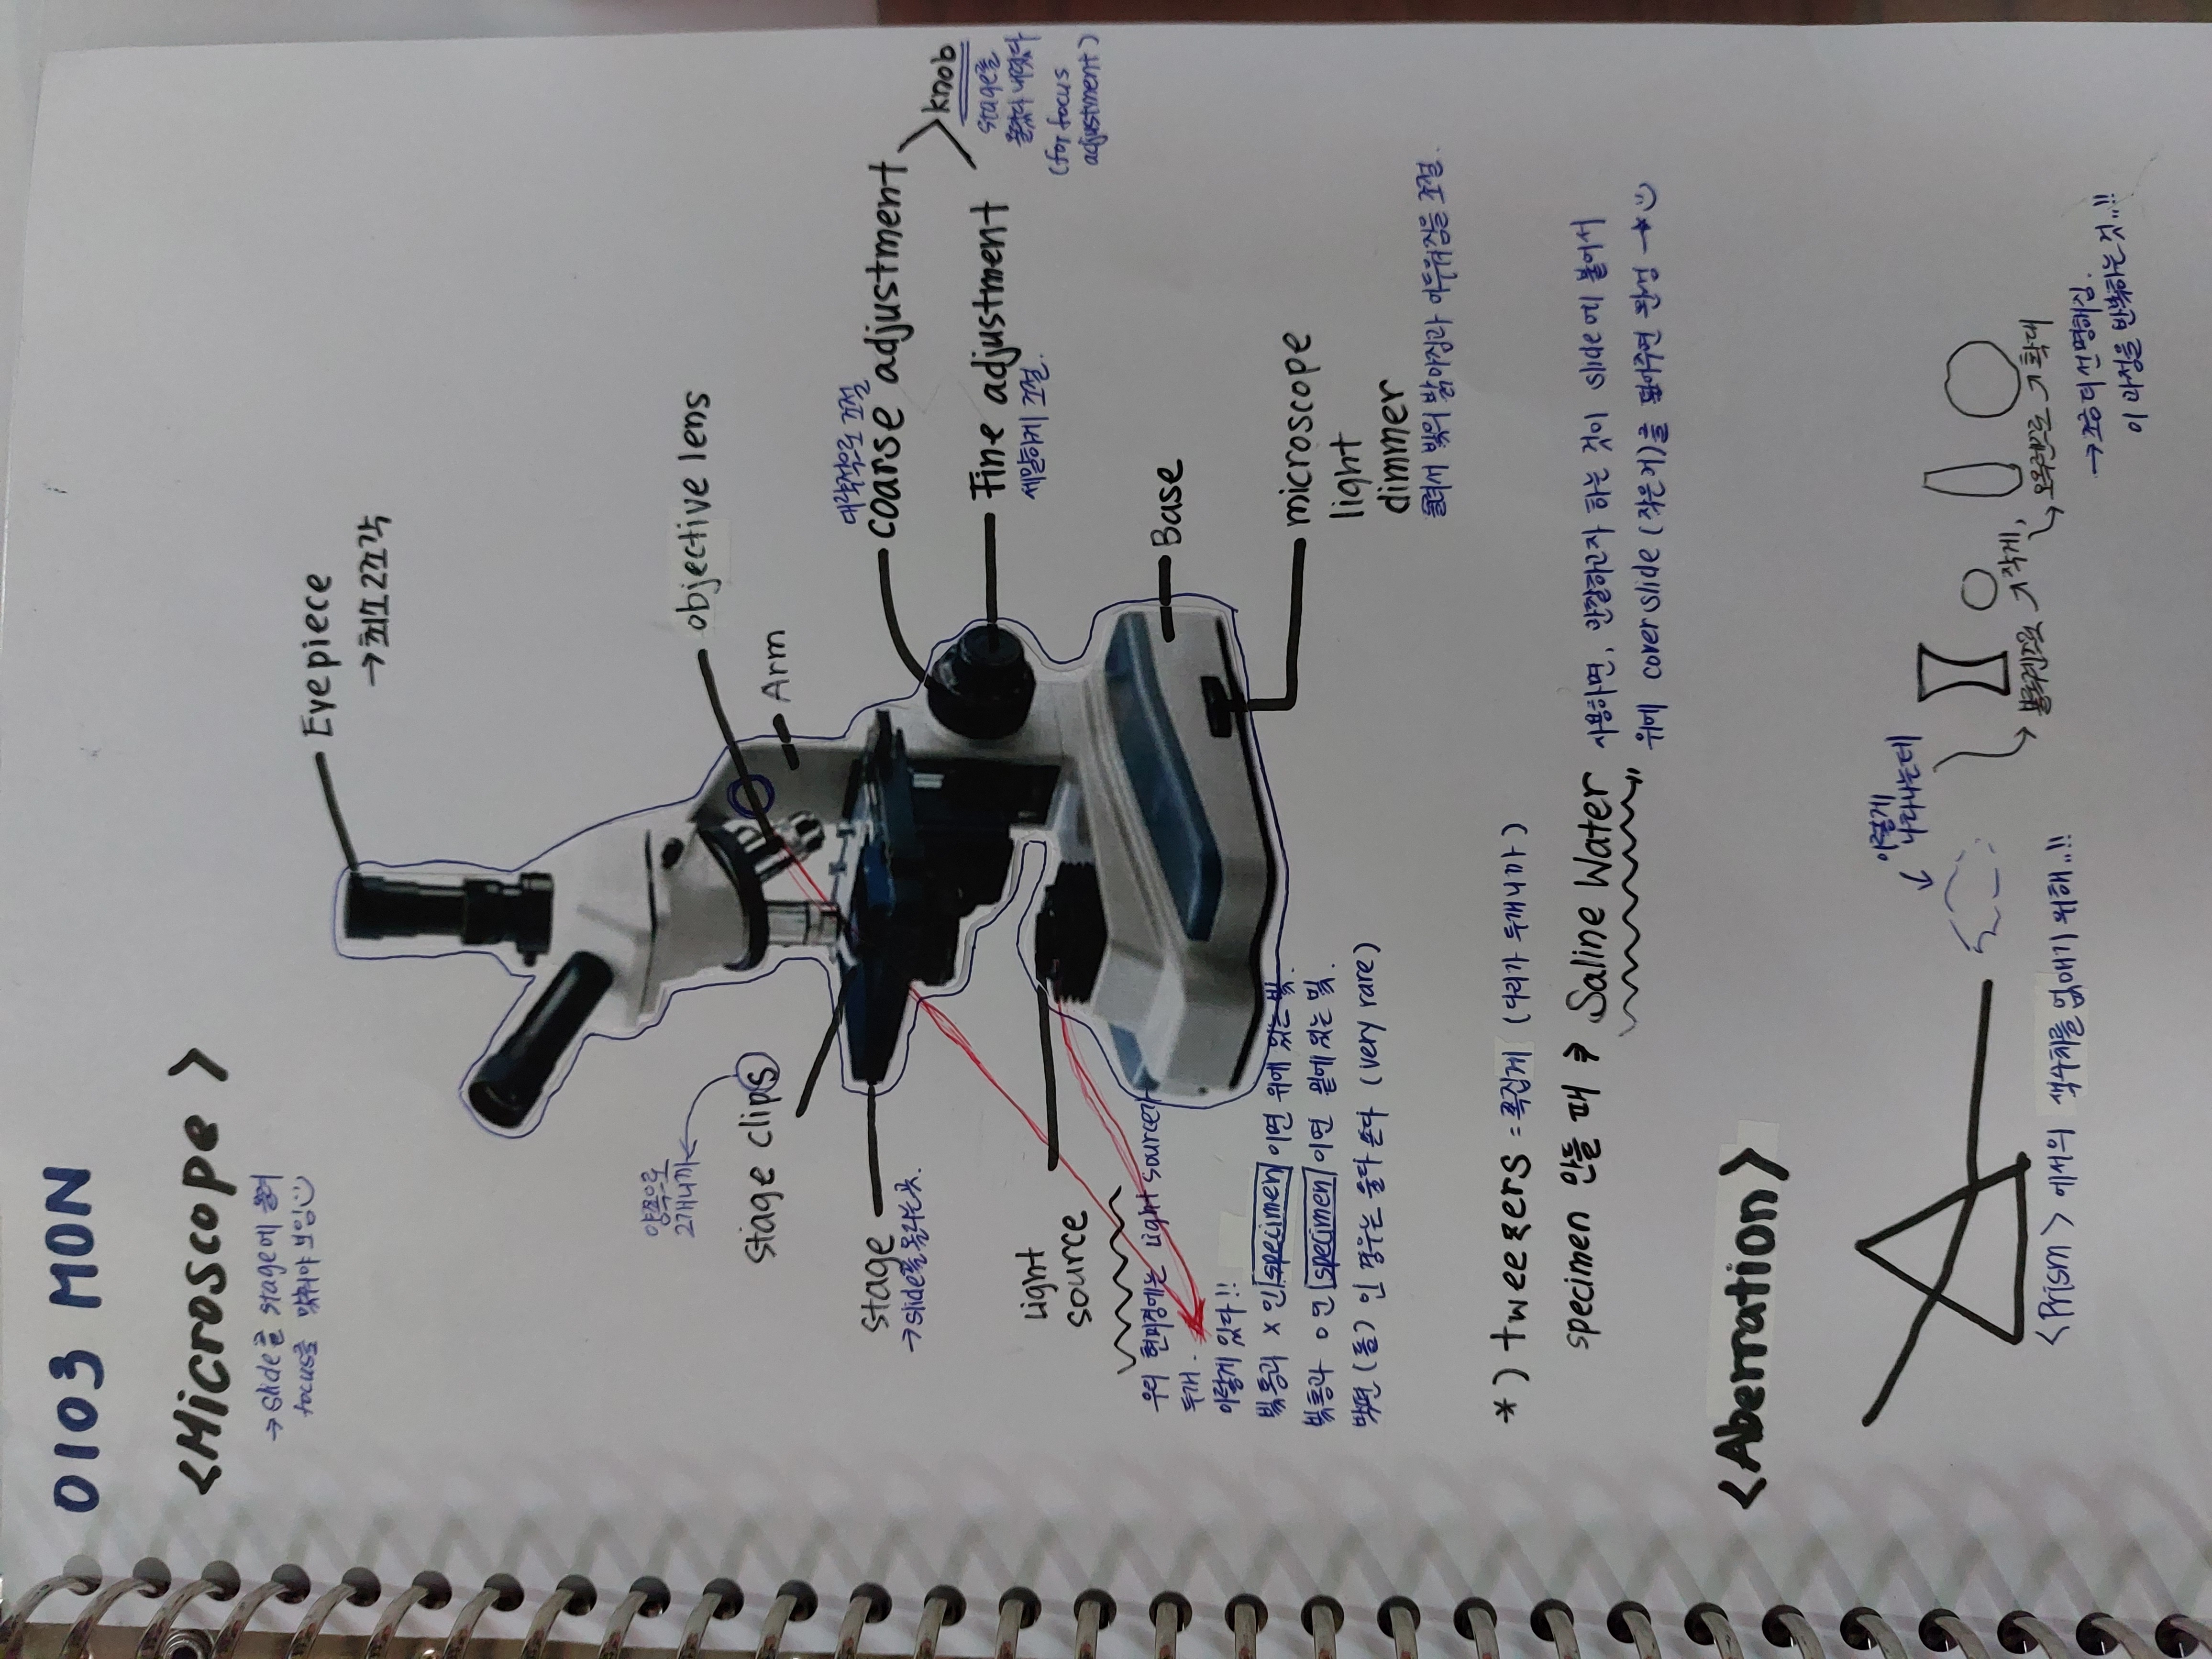 0103 MON
<Microscope>
→ slide를 stage에 올려
focus를 맞춰야 보임
Eyepiece
→ 최고 2조각
objective lens
Arm
대략적으로 조절
coarse adjustment
Fine adjustment
세밀하게 조절.
knob
stage를
올렸다 내렸다
(for focus
adjustment)
양쪽으로
2개니까
stage clips
stage
→ slide를 올리는 곳.
Light
source
Base
microscope
light
dimmer
돌려서 빛의 밝아짐과 어두워짐을 조절.
우리 현미경에는 light source가
두개.
이렇게 있다!!
빛통과 x 인 specimen 이면 위에 있는 빛.
빛통과 o 인 specimen 이면 밑에 있는 빛.
맞편 (둘) 인 경우는 둘다 쓴다 (very rare)
*) tweezers = 족집게 (다리가 두개니까)
specimen 만들 때 → "Saline Water" 사용하면, 관찰하고자 하는 것이 slide에 붙어서
위에 cover slide (작은거)를 덮어주면 완성
<Aberration>
이렇게
나타나는데
<Prism> 에서의 색수차를 없애기 위해..!!
볼록렌즈로 더 작게,
오목렌즈로 더 확대
→ 좀 더 선명해짐.
이 과정을 반복하는 것..!!